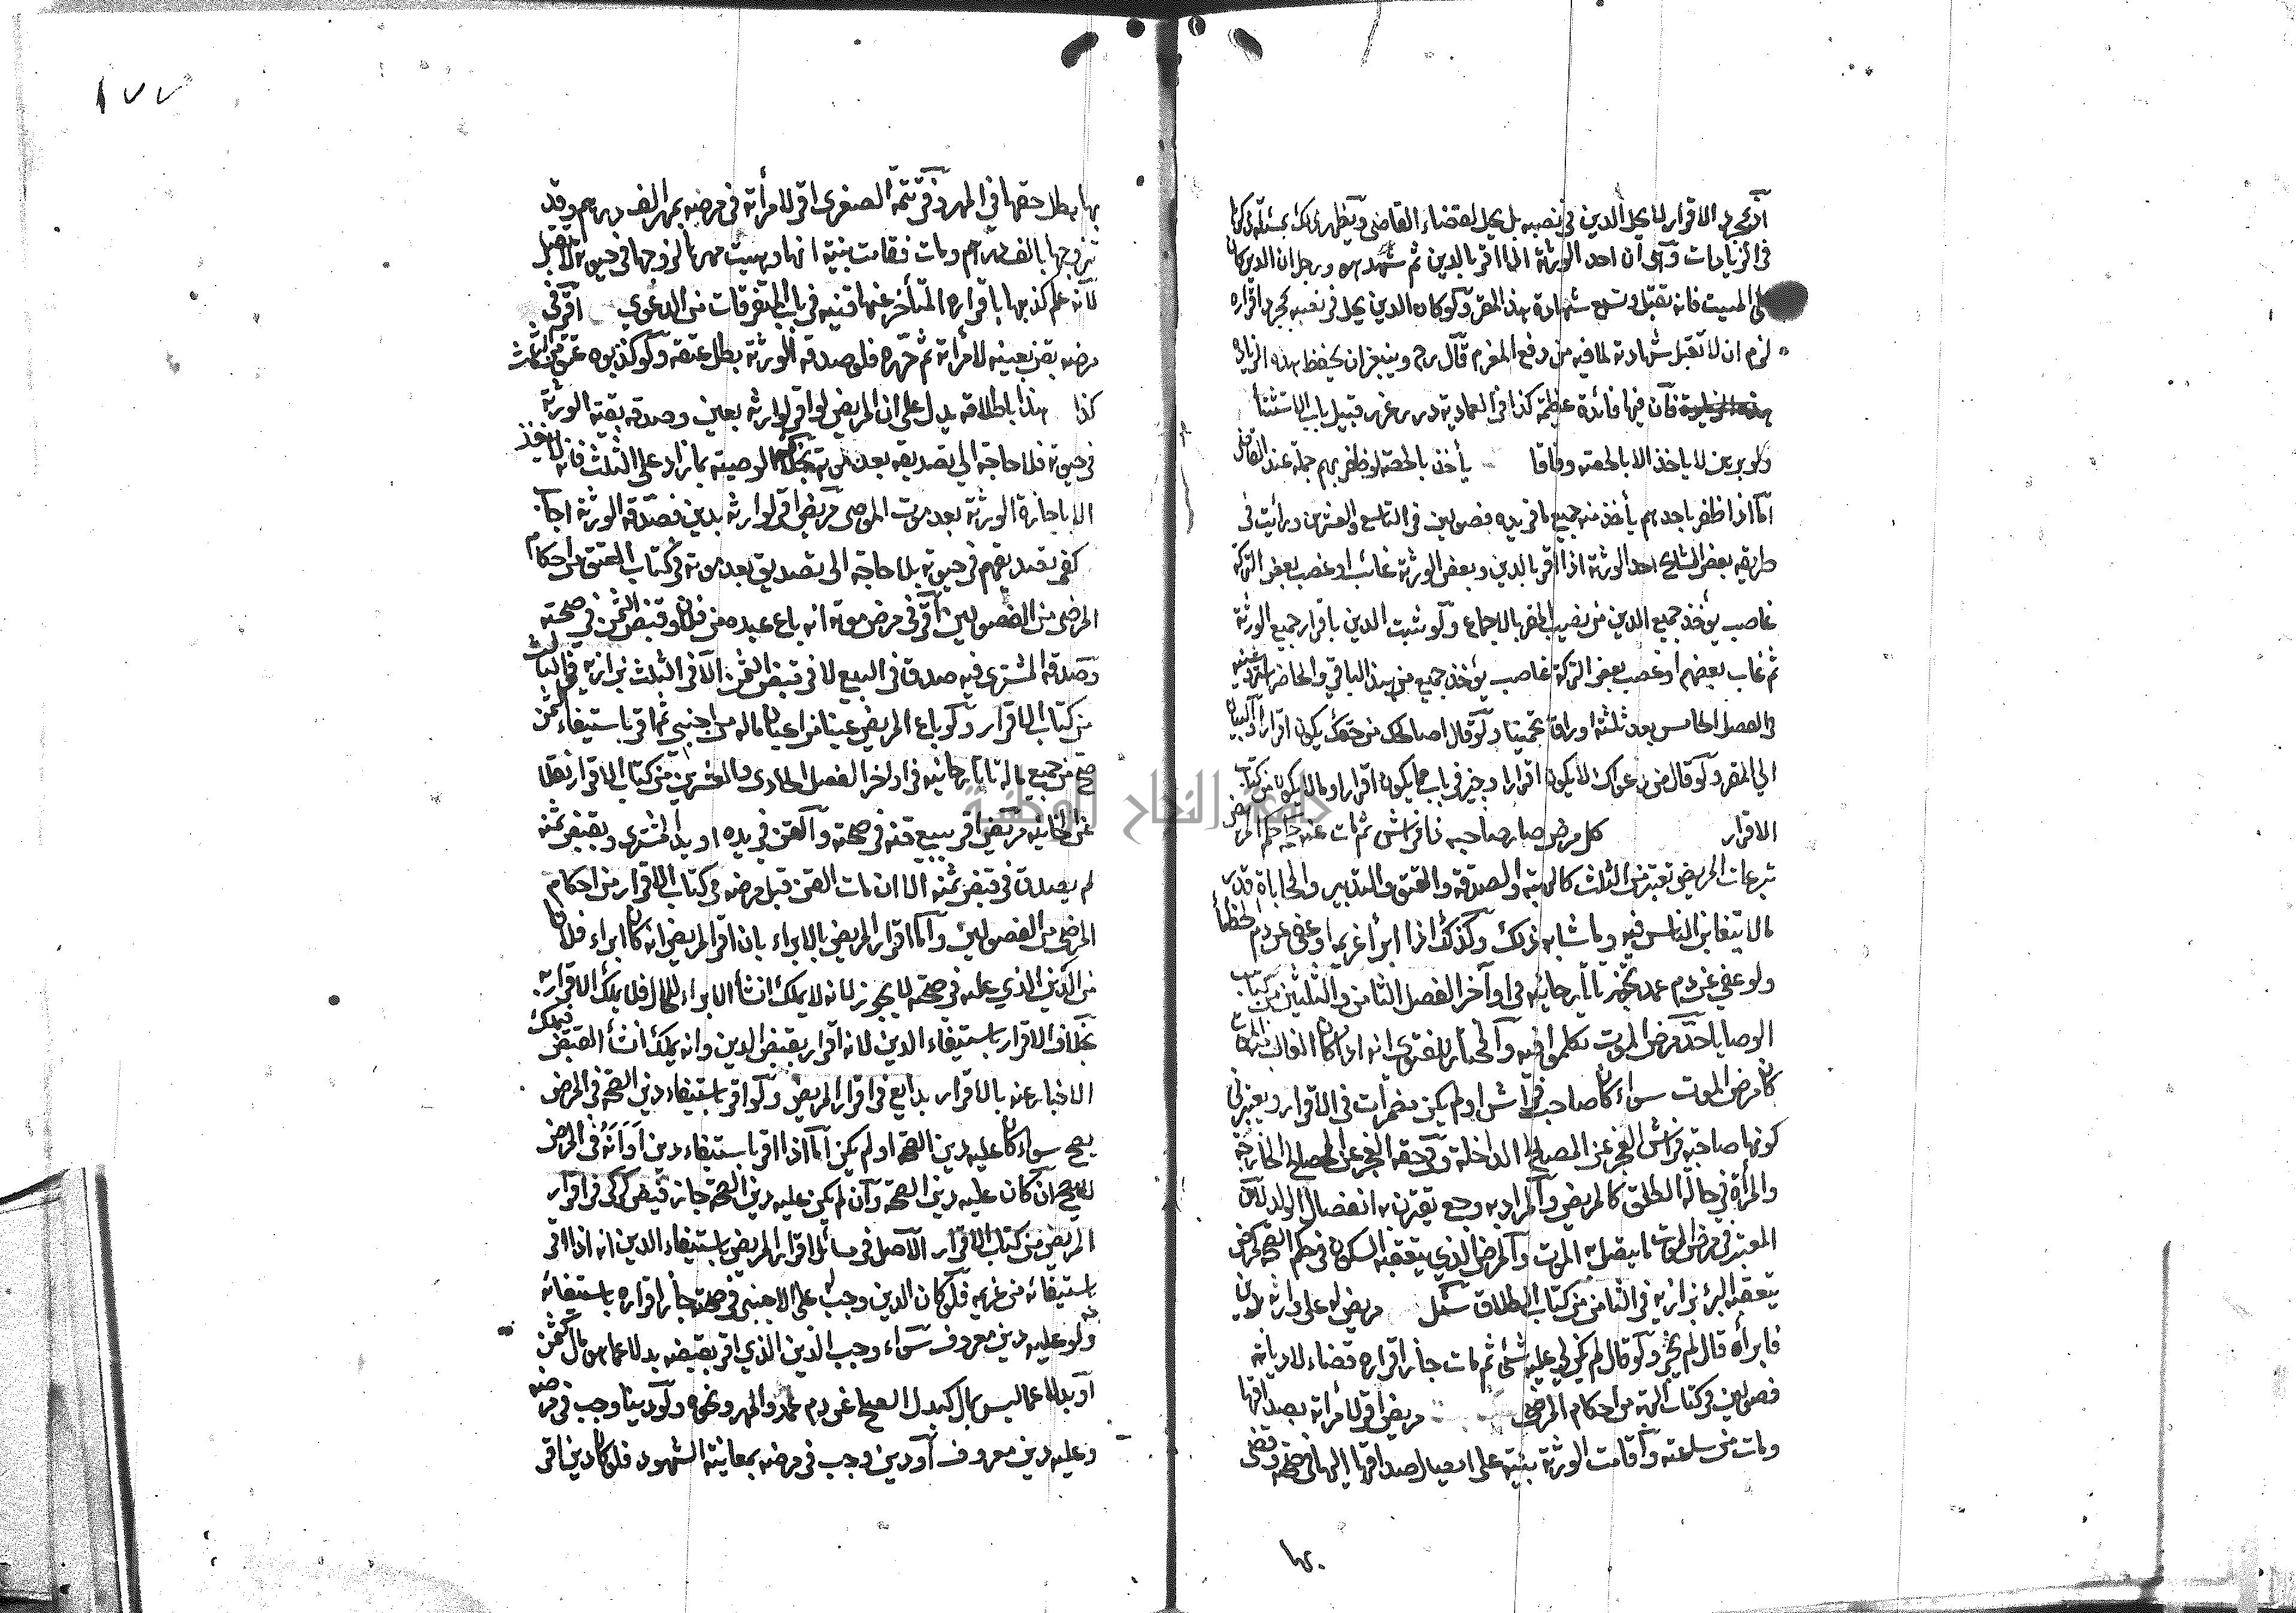 اذ بمجرد الاقرار لا يحل الدين في نصيبه بل يحل لقضاء القاضي ويظهر ذلك بمسئلة ذكرها
في الزيادات وهي ان احد الورثة اذا اقر بالدين ثم شهد هو ورجل ان الدين كان
على الميت فانه تقبل وتسمع شهادة هذا المقر ولو كان الدين يحل في نصيبه بمجرد اقراره
لزم ان لا تقبل شهادته لما فيه من دفع المغرم قال رح وينبغي ان يحفظ هذه الزيادة
فان فيها فائدة عظيمة كذا في العمادية درر غرر قبيل باب الاستثناء
ولو برهن لا ياخذ الا بالحصة وفاقا يأخذ بالحصة لو ظفر بهم جملة عند القاضي
اما اذا ظفر باحدهم يأخذ منه جميع ما في يده فصولين في التاسع والعشرين ورأيت في
طريقة بعض المشايخ احد الورثة اذا اقر بالدين وبعض الورثة غائب او غصب بعض التركة
غاصب يؤخذ جميع الدين من نصيب المقر بالاجماع ولو ثبت الدين باقرار جميع الورثة
ثم غاب بعضهم او غصب بعض التركة غاصب يؤخذ جميع من هذا الباقي والحاضر
في الفصل الخامس بعد ثلثة اوراق تخمينا ولو قال اصالحك من حقك يكون اقرارا والبيان
الي المقر ولو قال من دعواك لا يكون اقرارا وجيز في باب ما يكون اقرارا وما لا يكون من كتاب
الاقرار كل مرض صار صاحبه ذا فراش ثم مات عنه حكم المرض
تبرعات المريض تعتبر من الثلث كالهبة والصدقة والعتق والتدبير والمحاباة قدر
ما لا يتغابن الناس فيه وما شابه ذلك وكذلك اذا ابرأ غريمه او عفى عن دم الخطأ
ولو عفي عن دم عمد يجوز تاتارخانيه في اوآخر الفصل الثامن والثلثين من كتاب
الوصايا حد مرض الموت تكلموا فيه والمختار للفتوى انه اذا كان الغالب منه الموت
كان مرض الموت سواء كان صاحب فراش او لم يكن مضمرات في الاقرار ويعتبر في
كونها صاحبة فراش العجز عن المصالح الداخلة وفي حقه العجز عن المصالح الخارجة
والمرأة في حالة الطلق كالمريض والمراد به وجع يقترن به انفصال الولد لان
المعتبر في مرض الموت ما يتصل به الموت والمرض الذي يتعقبه السكون في حكم الصحة كمرض
يتعقبه البرء بزازيه في الثامن من كتاب الطلاق سئل مريض له على وارثه دين
فابرأه قال لم يجز ولو قال لم يكن لي عليه شئ ثم مات جاز اقراره قضاء لا ديانة
فصولين في كتاب الهبة من احكام المرضى مريض اقر لامرأته بصداقها
ومات من ساعته واقامت الورثة بينة على ايصال صداقها اليها في صحته وقضى
بها
١٧٧
بها بطل حقها في المهر وفي تتمة الصغرى اقر لامرأته في مرضه بمهر الف درهم وقد
تزوجها بالف درهم ومات فقامت بينة انها وهبت مهرها لزوجها في حيوته لا تقبل
لانه علم كذبها باقراره المتأخر عنها قنيه في باب المتفرقات من الدعوى اقر في
مرضه بقن بعينه لامرأته ثم حرره فلو صدقه الورثة بطل عتقه ولو كذبوه عتق من الثلث
كذا هذا باطلاقه يدل على ان المريض لو اقر لوارثه بعين وصدقه بقية الورثة
في حيوته فلا حاجة الى تصديقه بعد موته بخلاف الوصية بما زاد على الثلث فانه لا ينفذ
الا باجازة الورثة بعد موت الموصى مريض اقر لوارثه بدين فصدقه الورثة اجاب
كفى تصديقهم في حيوته بلا حاجة الى تصديق بعد موته في كتاب العتق من احكام
المرضى من الفصولين اقر في مرض موته انه باع عبده من فلان وقبض الثمن في صحته
وصدقه المشترى فيه صدق في البيع لا في قبض الثمن الا في الثلث بزازيه في الثالث
من كتاب الاقرار ولو باع المريض عينا من اعيان ماله من اجنبي ثم اقر باستيفاء الثمن
صح من جميع ماله تاتارخانيه في اواخر الفصل الحادى والعشرين من كتاب الاقرار نقلا
عن الخانيه مريض اقر ببيع قنه في صحته والقن في يده او يد المشترى وبقبض ثمنه
لم يصدق في قبض ثمنه الا ان مات القن قبل مرضه في كتاب الاقرار من احكام
المرضى من الفصولين واما اقرار المريض بالابراء بان اقر المريض انه كان ابراء فلانا
من الدين الذي عليه في صحته لا يجوز لانه لا يملك انشأ الابراء للحال فلا يملك الاقرار به
بخلاف الاقرار باستيفاء الدين لانه اقرار بقبض الدين وانه يملك انشأ القبض فيملك
الاخبار عنه بالاقرار بدايع في اقرار المريض ولو اقر باستيفاء دين الصحة في المرض
يصح سواء كان عليه دين الصحة او لم يكن اما اذا اقر باستيفاء دين ادانه في المرض
لا يصح ان كان عليه دين الصحة وان لم يكن عليه دين الصحة جاز فيض كركى في اقرار
المريض من كتاب الاقرار الاصل في مسائل اقرار المريض باستيفاء الدين انه اذا اقر
باستيفائه من غريمه فلو كان الدين وجب له على الاجنبى في صحته جاز اقراره باستيفائه
ولو عليه دين معروف سواء وجب الدين الذي اقر بقبضه بدلا عما هو مال كثمن
او بدلا عما ليس بمال كبدل الصلح عن دم عمد والمهر ونحوه ولو دينا وجب في مرضه
وعليه دين معروف او دين وجب في مرضه بمعاينة الشهود فلو كان دين اقر
جامعة النجاح الوطنية